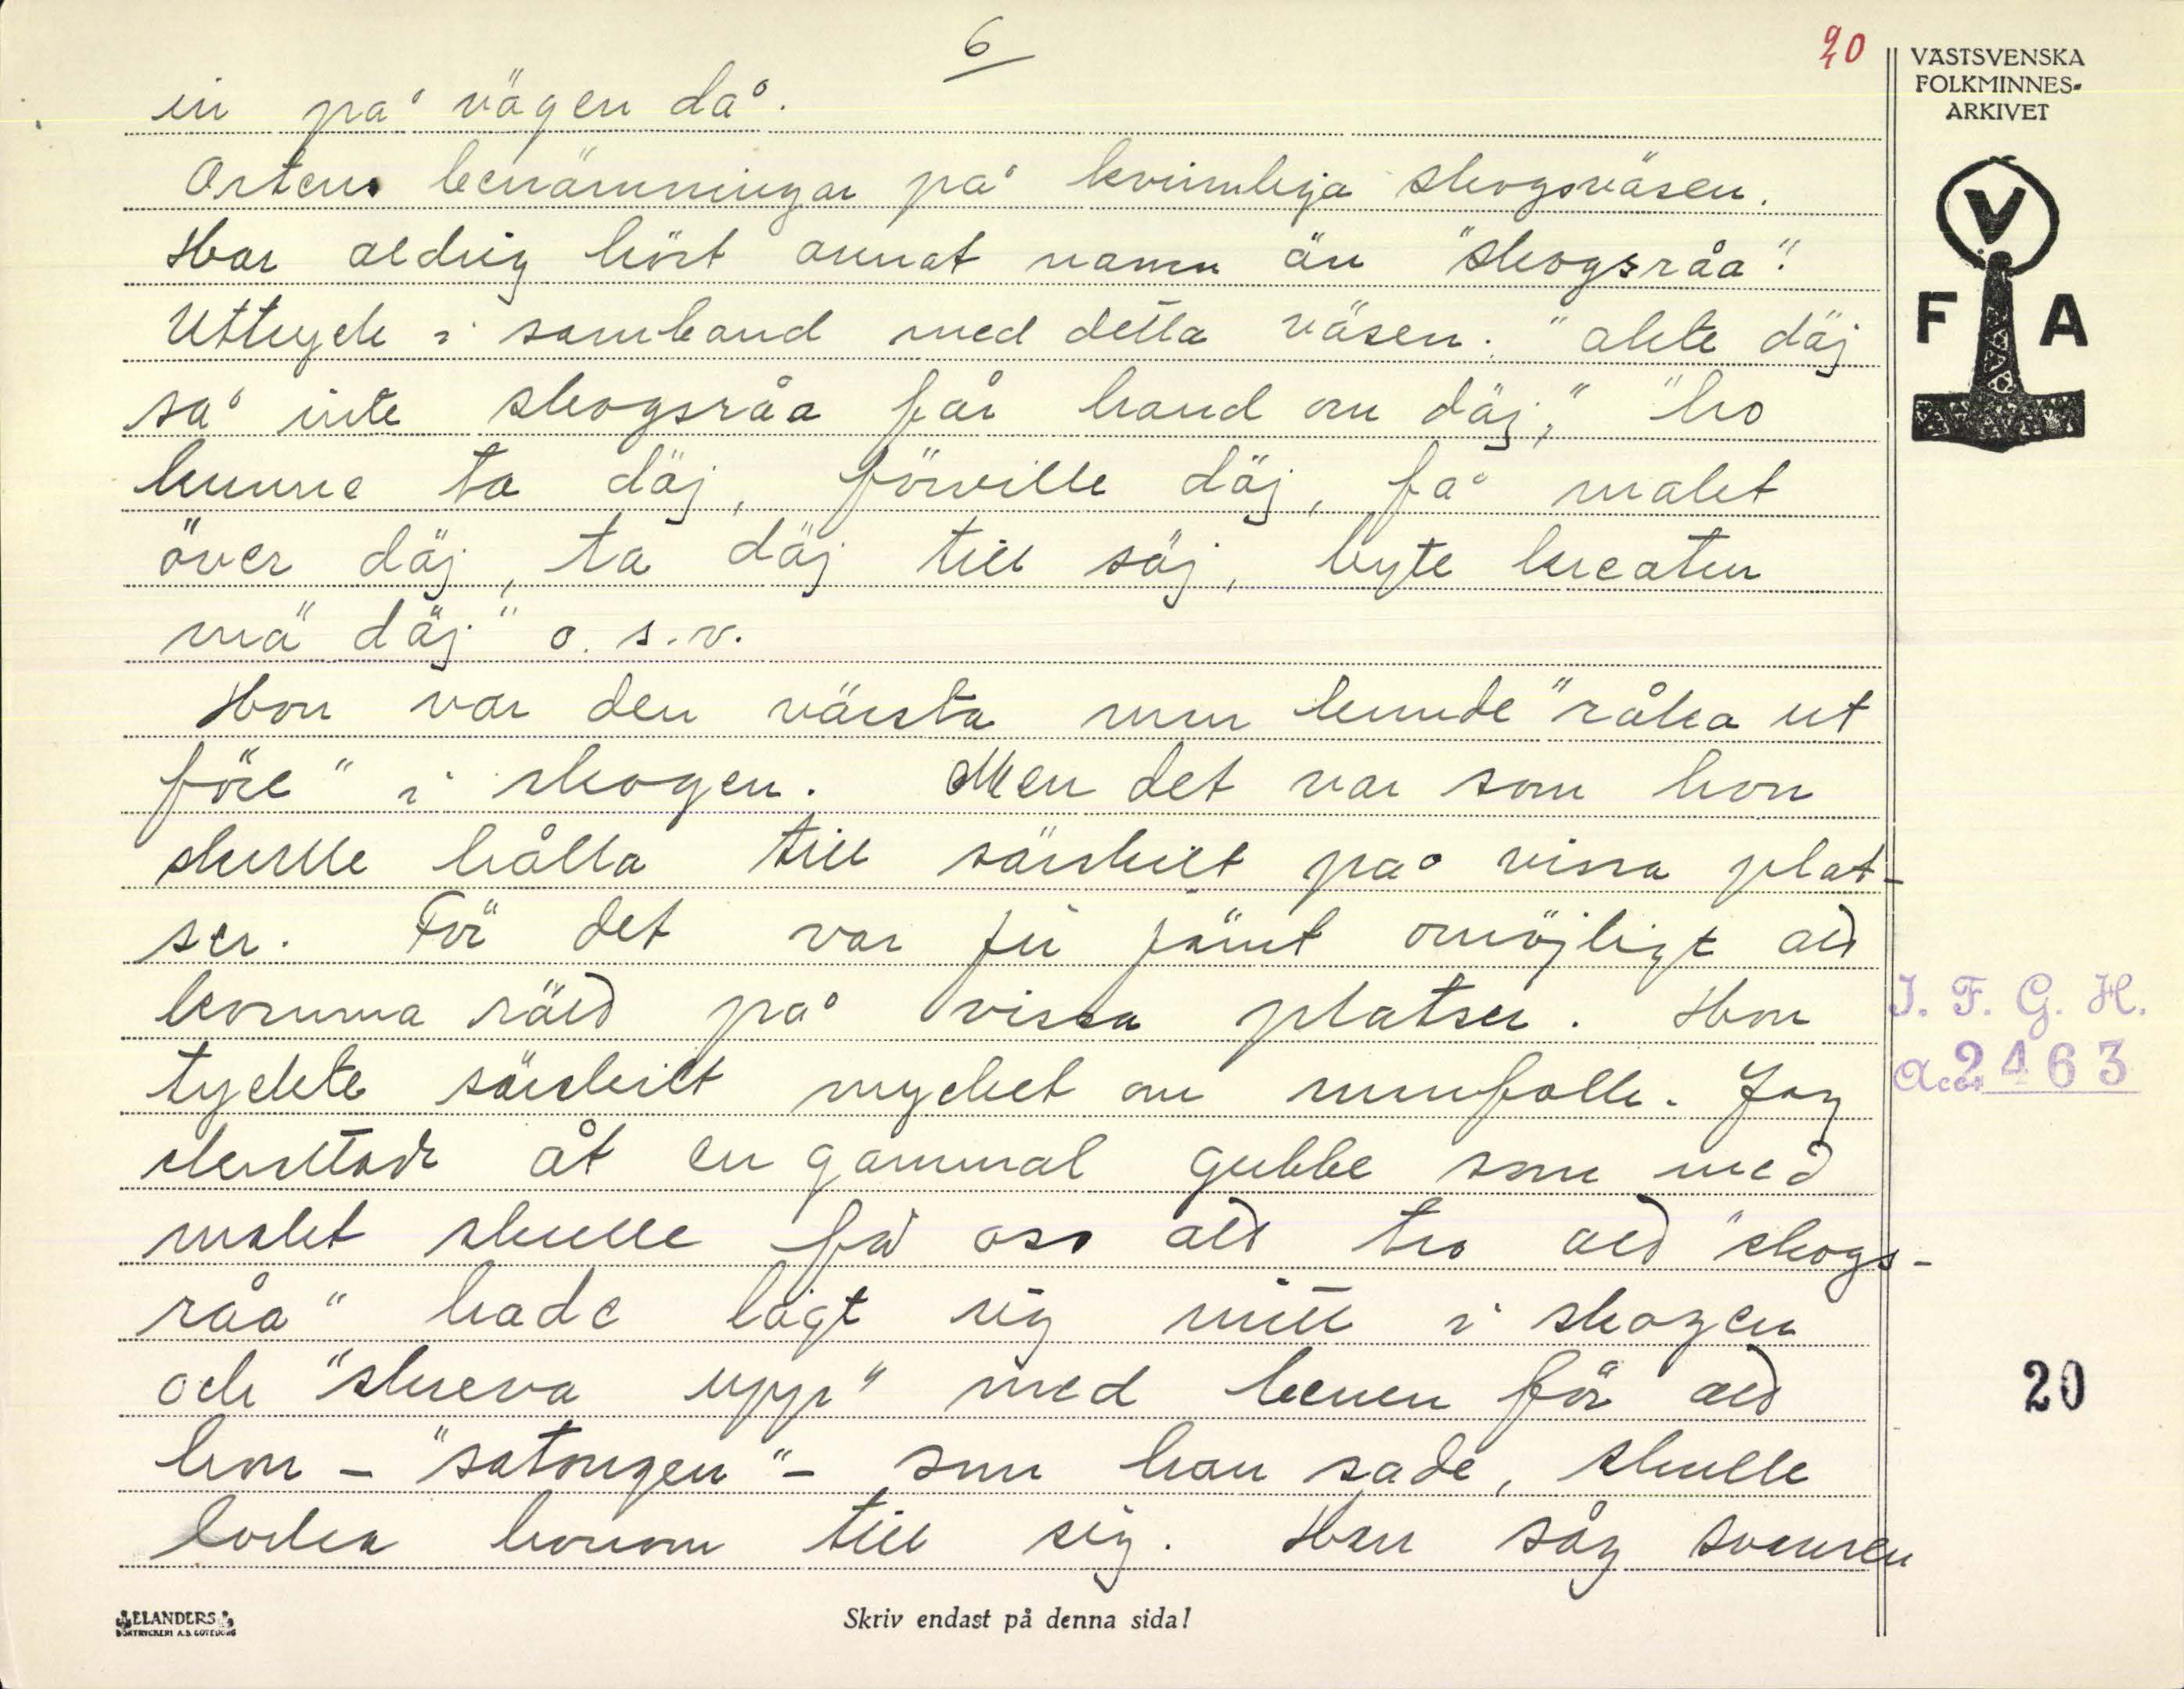 6
20
VÄSTSVENSKA
FOLKMINNES-
ARKIVET
V
F A
in på vägen då.
Ortens benämningar på kvinnliga skogsväsen.
Har aldrig hört annat namn än "skogsråa".
Uttryck i samband med detta väsen: "akte däj
så inte skogsråa får hand om däj," "ho
kunne ta däj, förville däj, få makt
över däj, ta däj till säj, byte kreatur
mä däj" o.s.v.
Hon var den värsta man kunde "råka ut
före" i skogen. Men det var som hon
skulle hålla till särskilt på vissa plat-
ser. För det var ju jämt omöjligt att
komma rätt på vissa platser. Hon
tyckte särskilt mycket om manfolk. Jag
skrattade åt en gammal gubbe som med
makt skulle få oss att tro att "skogs-
råa" hade lagt sig mitt i skogen
och "skreva upp" med benen för att
hon - "satongen" - som han sade, skulle
locka honom till sig. Han såg svansen
I. F. G. H.
Acc. 2463
20
ELANDERS
BOKTRYCKERI A.B. GÖTEBORG
Skriv endast på denna sida!